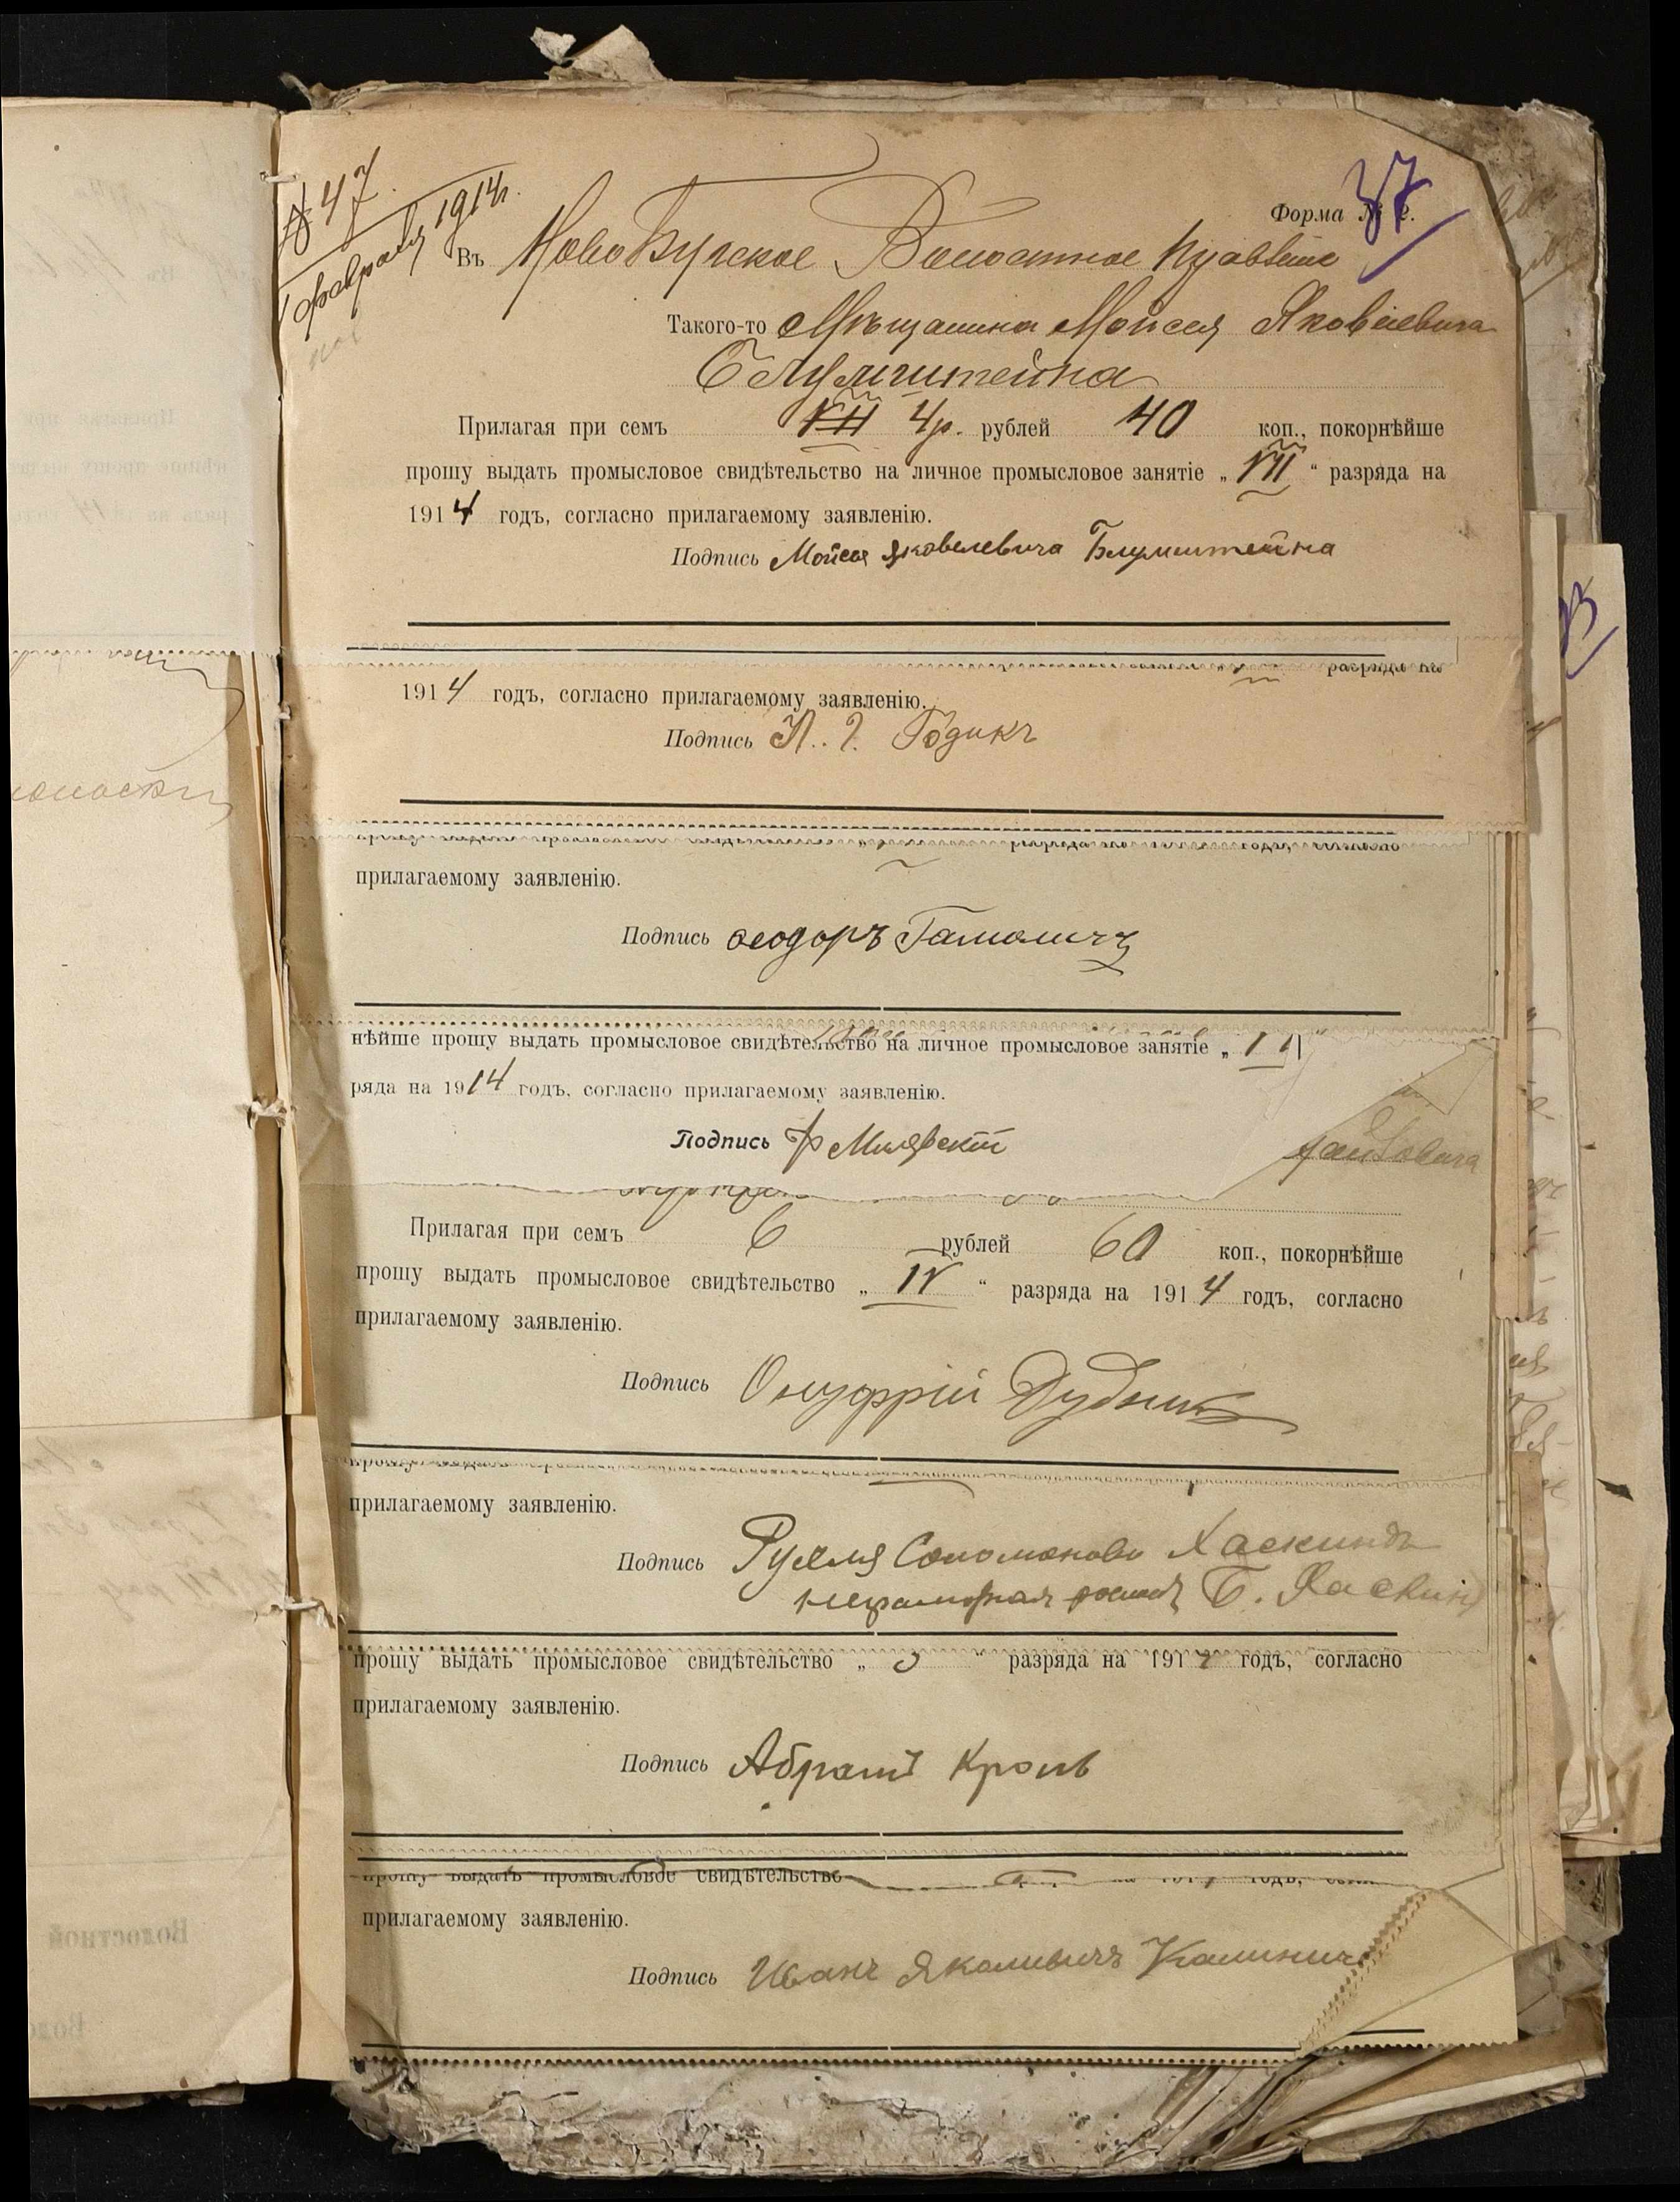 № 47
1 февраля 1914 г.
37
Форма № 2.
Въ НовоБугское Волостное Правленіе
Такого-то Мѣщанина Мойсея Яковлевича
Блумштейна
Прилагая при семъ VII 4 р. рублей 40 коп., покорнѣйше
прошу выдать промысловое свидѣтельство на личное промысловое занятіе „ VII “ разряда на
1914 годъ, согласно прилагаемому заявленію.
Подпись Мойсея Яковелевича Блумштейна
разряда на
1914 годъ, согласно прилагаемому заявленію.
Подпись Годикъ
прилагаемому заявленію.
Подпись Ѳеодоръ
нѣйше прошу выдать промысловое свидѣтельство на личное промысловое занятіе „
ряда на 1914 годъ, согласно прилагаемому заявленію.
Подпись Ф Милявскій
Прилагая при семъ 6 рублей 60 коп., покорнѣйше
прошу выдать промысловое свидѣтельство „ IV “ разряда на 1914 годъ, согласно
прилагаемому заявленію.
Подпись Онуфрій Дубник
прилагаемому заявленію.
Подпись Рухля Соломонова Хаскинъ
неграмотная Б. Хаскин
прошу выдать промысловое свидѣтельство „ “ разряда на 1914 годъ, согласно
прилагаемому заявленію.
Подпись Абрамъ Кроль
прошу выдать промысловое свидѣтельство
прилагаемому заявленію.
Подпись Иванъ Яколивичъ Калинич